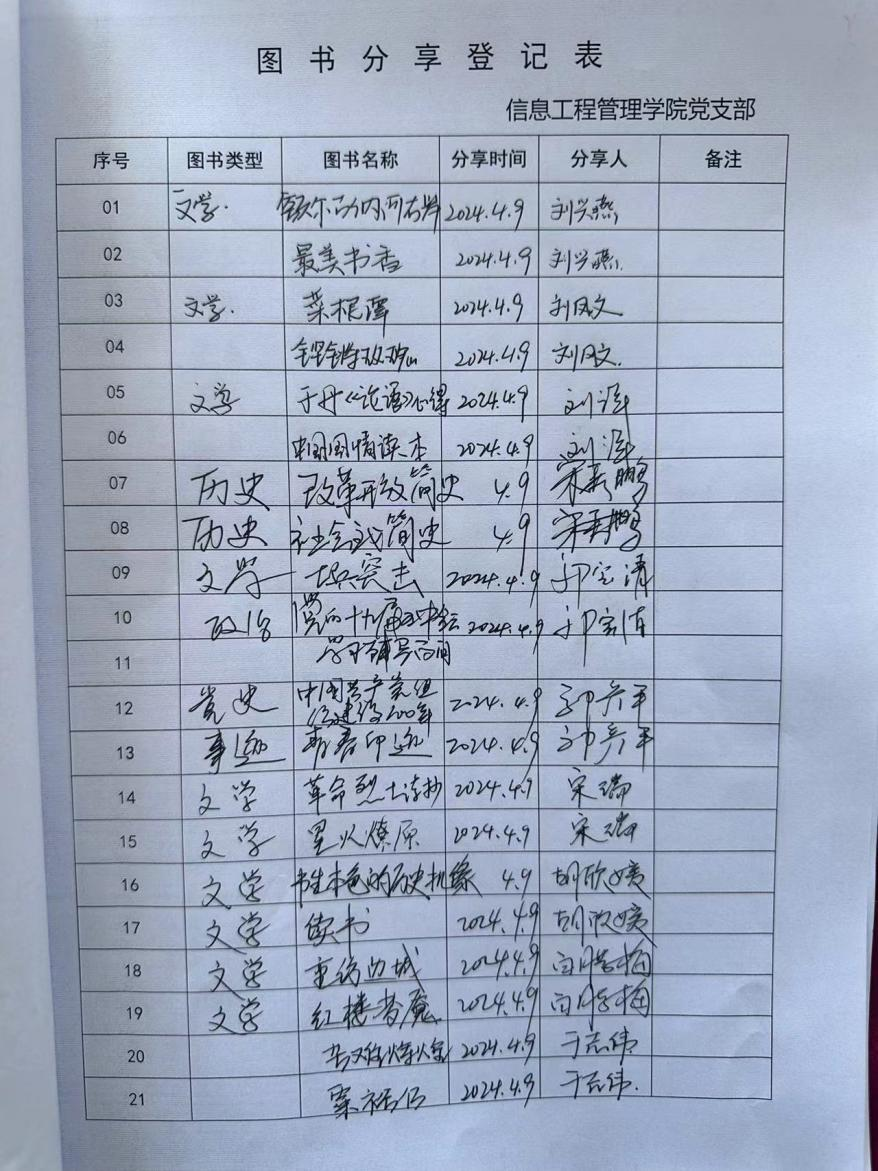 图书分享登记表
信息工程管理学院党支部
序号 图书类型 图书名称 分享时间 分享人 备注
01 文学. 额尔古纳河右岸 2024.4.9 刘兴燕
02 最美书香 2024.4.9 刘兴燕.
03 文学. 菜根谭 2024.4.9 刘凤文
04 2024.4.9 刘凤文.
05 文学 于丹《论语》心得 2024.4.9 刘
06 中国国情读本 2024.4.9 刘
07 历史 改革开放简史 4.9 宋新鹏
08 历史 社会主义简史 4.9 宋新鹏
09 文学 士兵突击 2024.4.9 郭宝清
10 政治 党的十九届五中全会 2024.4.9 郭宝清
11 学习辅导百问
12 党史 中国共产党组 2024.4.9
织建设100年
13 事迹 青春印迹 2024.4.9
14 文学 革命烈士诗抄 2024.4.9 宋瑞
15 文学 星火燎原 2024.4.9 宋瑞
16 文学 书生本色的历史机缘 4.9 胡欣
17 文学 读书 2024.4.9 胡欣
18 文学 重访边城 2024.4.9 白
19 文学 红楼梦魇 2024.4.9 白
20 2024.4.9 于志伟
21 2024.4.9 于志伟.